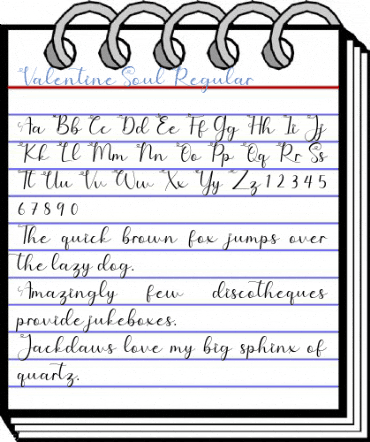 Valentine Soul Regular
Aa Bb Cc Dd Ee Ff Gg Hh Ii Jj
Kk Ll Mm Nn Oo Pp Qq Rr Ss
Tt Uu Vv Ww Xx Yy Zz 1 2 3 4 5
6 7 8 9 0
The quick brown fox jumps over
the lazy dog.
Amazingly few discotheques
provide jukeboxes.
Jackdaws love my big sphinx of
quartz.